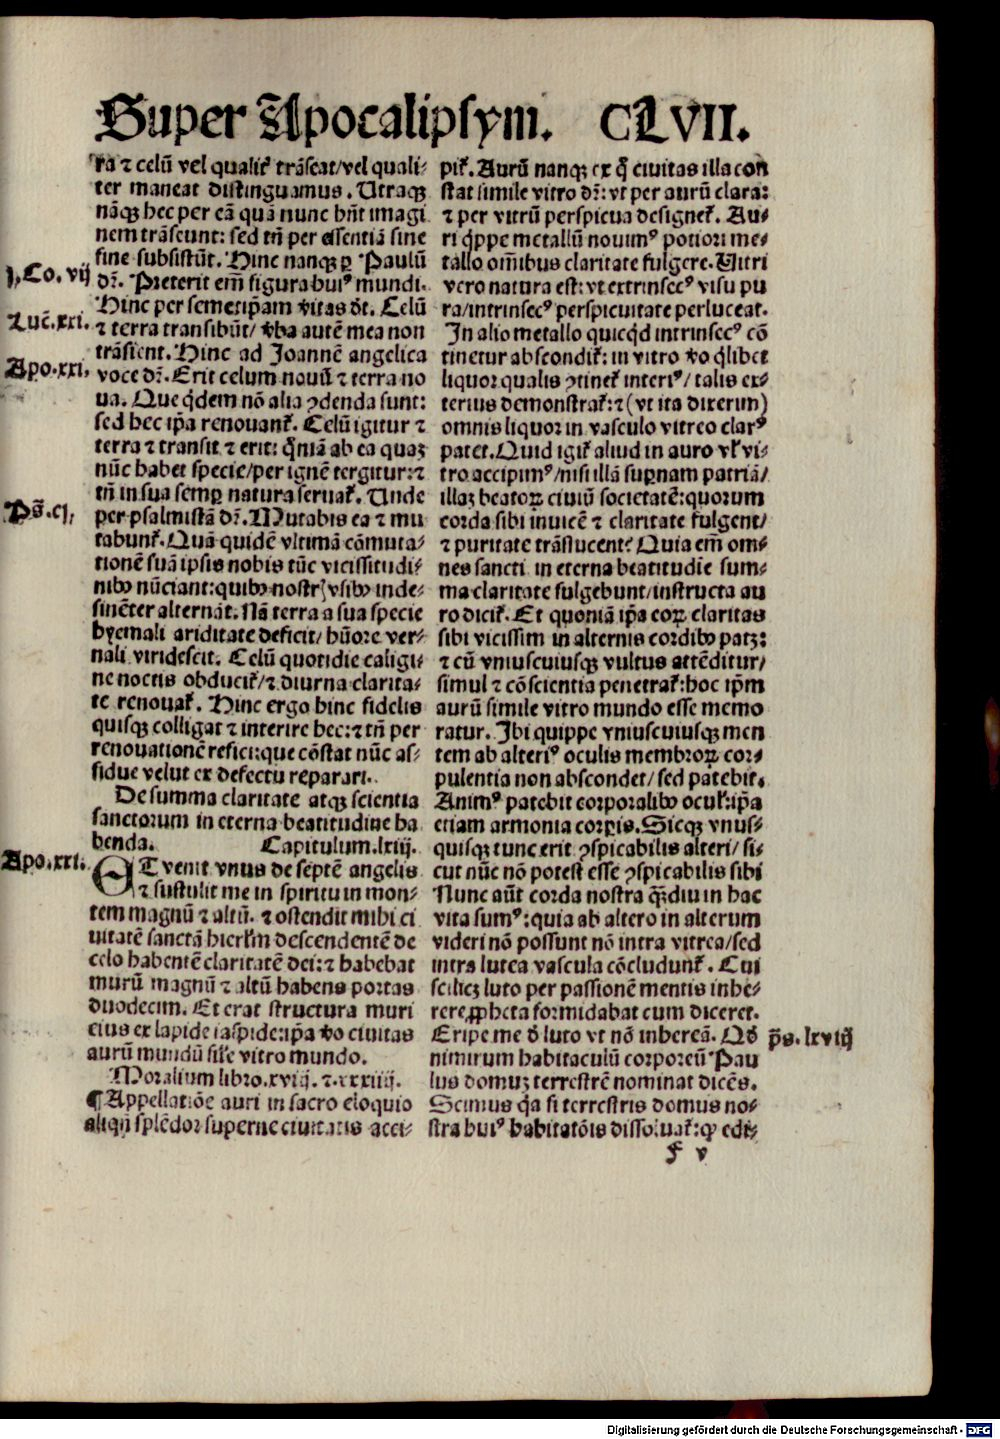 Super Apocalipsym. CLVII.
ra ⁊ celū vel qualiť trāseat/vel quali⸗
ter maneat distinguamus. Utraqꝫ
nāqꝫ hec per eā quā nunc hn̄t imagi
nem trāseunt: sed tn̄ per essentiā sine
fine subsistūt. Hinc nanqꝫ ꝑ Paulū
j. Co. vij
dr̄. Preterit em̄ figura huiꝰ mundi.
Hinc per semetip̄am v̄itas dt̄. Celū
Luc̄. xxi.
⁊ terra transibūt/ v̄ba autē mea non
trāsient. Hinc ad Joannē angelica
Apo. xxi.
voce dr̄. Erit celum nouū ⁊ terra no
ua. Que q̇dem nō alia ꝯdenda sunt:
sed hec ip̄a renouant᷑. Celū igitur ⁊
terra ⁊ transit ⁊ erit: qm̄iā ab ea quaꝫ
nūc habet specie/per ignē tergitur:⁊
tn̄ in sua semꝑ natura seruat᷑. Unde
Ps̄. cj.
per psalmistā dr̄. Mutabis ea ⁊ mu
tabunt᷑. Quā quidē vltimā cōmuta⸗
tionē suā ipsis nobis tūc vicissitudi⸗
nibꝰ nūciant: quibꝰ nostrꝭ vsibꝰ inde⸗
sinēter alternāt. Nā terra a sua specie
hyemali ariditate deficit/ hūore ver⸗
nali viridescit. Celū quotidie caligi⸗
ne noctis obducit᷑/⁊ diurna clarita⸗
te renouat᷑. Hinc ergo hinc fidelis
quisqꝫ colligat ⁊ interire hec:⁊ tn̄ per
renouationē refici: que cōstat nūc as⸗
sidue velut ex defectu reparari.
De summa claritate atqꝫ scientia
sanctorum in eterna beatitudine ha
benda. Capitulum. lxiij.
Apo. xxi.
ET venit vnus de septē angelis
⁊ sustulit me in spiritu in mon⸗
tem magnū ⁊ altū. ⁊ ostendit mihi ci
uitatē sanctā hierl̄m descendentē de
celo habentē claritatē dei:⁊ habebat
murū magnū ⁊ altū habens portas
duodecim. Et erat structura muri
eius ex lapide iaspide: ip̄a v̄o ciuitas
aurū mundū sil̄e vitro mundo.
Moralium libro. xviij. ⁊. xxxiiij.
¶Appellatiōe auri in sacro eloquio
aliqn̄ splēdor superne ciuitatis acci⸗
pit᷑. Aurū nanqꝫ ex q̇ ciuitas illa con
stat simile vitro dr̄: vt per aurū clara:
⁊ per vitrū perspicua designet᷑. Au⸗
ri q̇ppe metallū nouimꝰ potiori me⸗
tallo om̄ibus claritate fulgere. Uitri
vero natura est: vt extrinsecꝰ visu pu
ra/intrinsecꝰ perspicuitate perluceat.
In alio metallo quicq̇d intrinsecꝰ cō
tinetur abscondit᷑: in vitro v̄o q̇libet
liquor qualis ꝯtinet᷑ interiꝰ/ talis ex⸗
terius demonstrat᷑:⁊ (vt ita dixerim)
omnis liquor in vasculo vitreo clarꝰ
patet. Quid igit᷑ aliud in auro vl̄ vi⸗
tro accipimꝰ/nisi illā suꝑnam patriā/
illaꝫ beatoꝝ ciuiū societatē: quorum
corda sibi inuicē ⁊ claritate fulgent/
⁊ puritate trāslucent? Quia em̄ om⸗
nes sancti in eterna beatitudine sum⸗
ma claritate fulgebunt/instructa au
ro dicit᷑. Et quoniā ip̄a eoꝝ claritas
sibi vicissim in alternis cordibꝰ patꝫ:
⁊ cū vniuscuiusqꝫ vultus attēditur/
simul ⁊ cōscientia penetrat᷑: hoc ip̄m
aurū simile vitro mundo esse memo
ratur. Ibi quippe vniuscuiusqꝫ men
tem ab alteriꝰ oculis membroꝝ cor⸗
pulentia non abscondet/ sed patebit.
Animꝰ patebit corporalibꝰ ocul᷑: ip̄a
etiam armonia corꝑis. Sicqꝫ vnus⸗
quisqꝫ tunc erit ꝯspicabilis alteri/ si⸗
cut nūc nō potest esse ꝯspicabilis sibi
Nunc aūt corda nostra q̄ꝫdiu in hac
vita sumꝰ: quia ab altero in alterum
videri nō possunt nō intra vitrea/sed
intra lutea vascula cōcludunt᷑. Cui
scilicꝫ luto per passionē mentis inhe⸗
rere ꝓpheta formidabat cum diceret.
Eripe me d̄ luto vt nō inhereā. Qd̄
ps̄. lxviij
nimirum habitaculū corporeū Pau
lus domuꝫ terrestrē nominat dicēs.
Scimus q̇a si terrestris domus no⸗
stra huiꝰ habitatōis dissoluat᷑: qꝙ edi⸗
f v
Digitalisierung gefördert durch die Deutsche Forschungsgemeinschaft - DFG